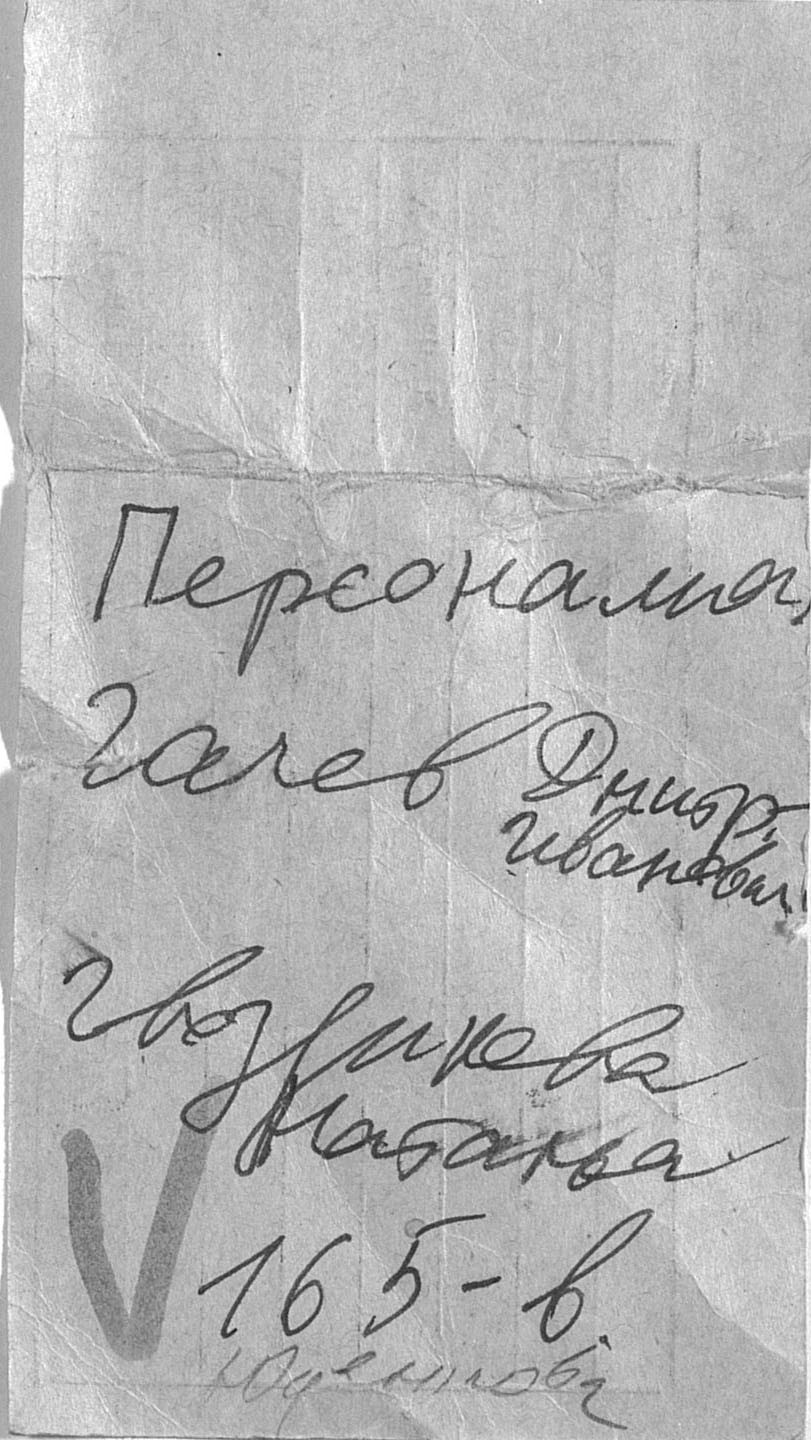 Персоналиа,
Гачев Дмитр.
Иванович
Гвоздикова
Наталья
165-в.